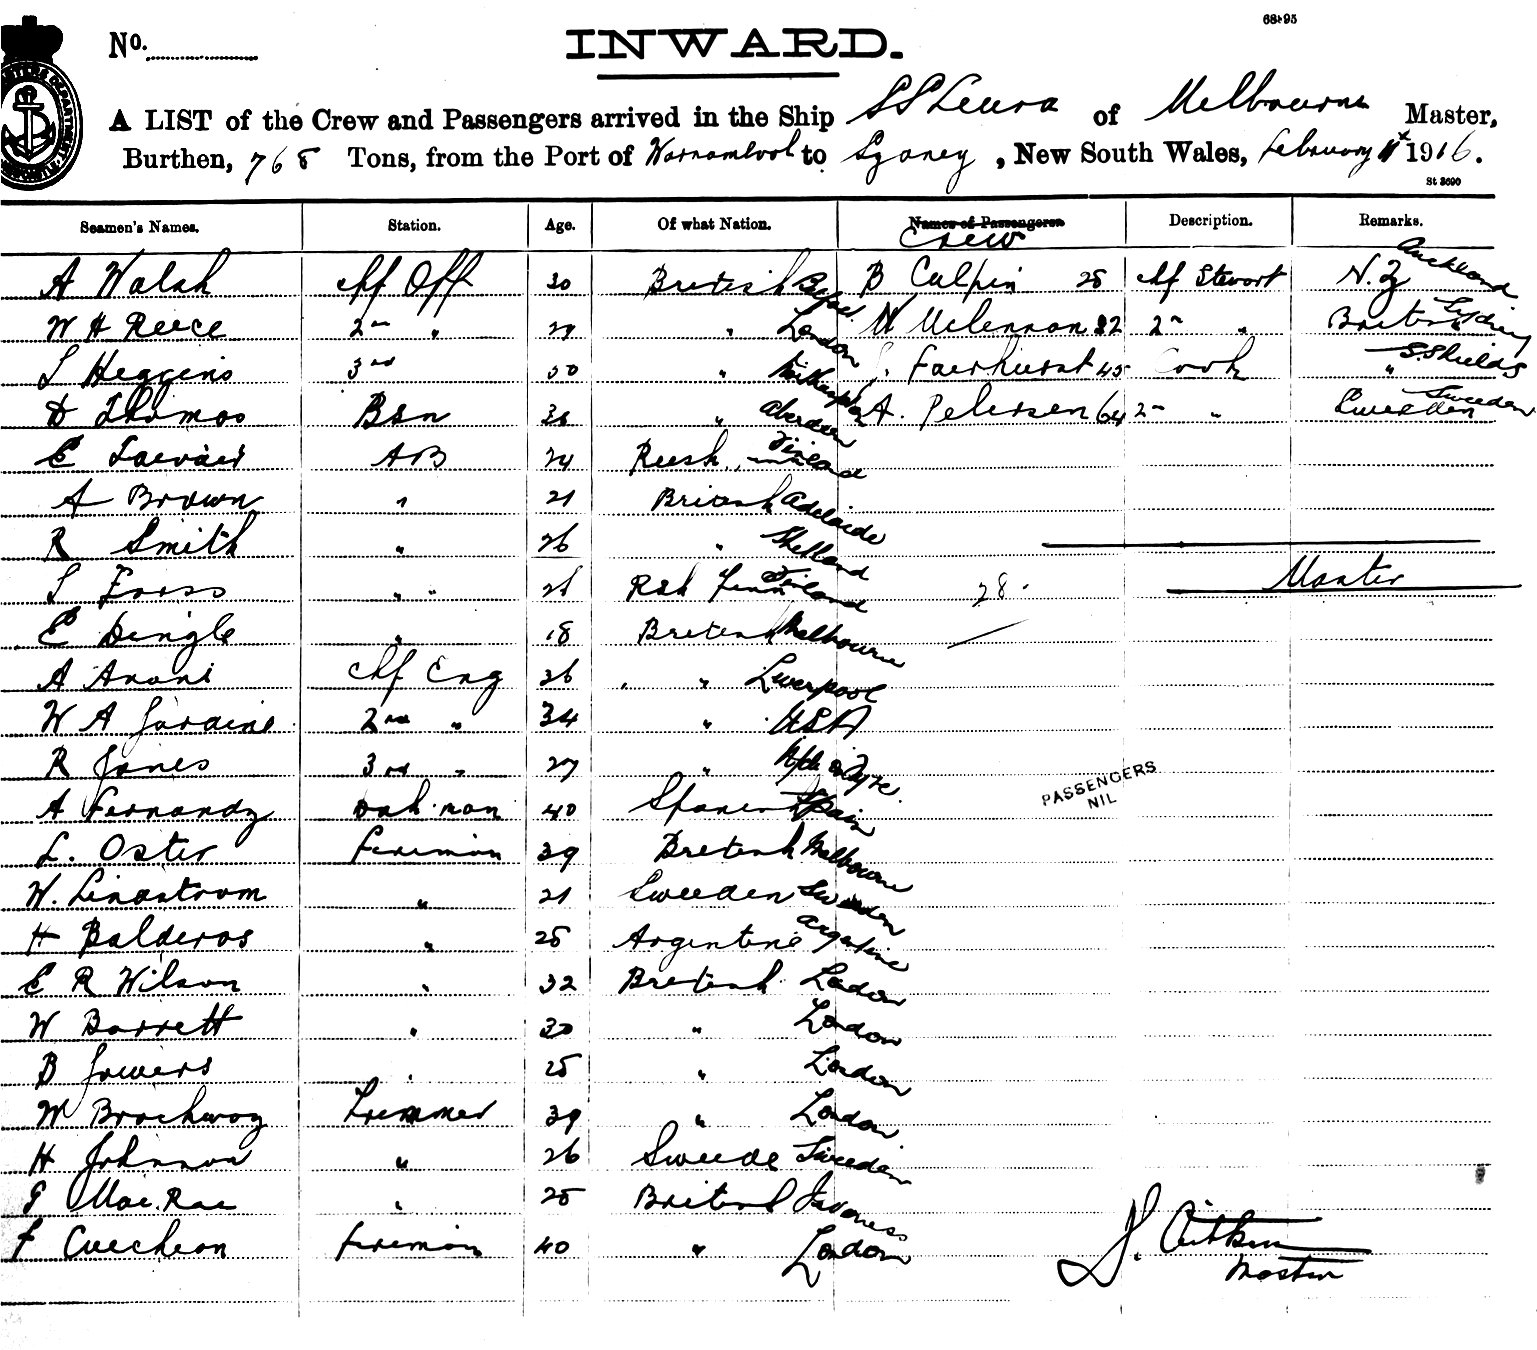 68-95
No.
INWARD.
A LIST of the Crew and Passengers arrived in the Ship SS Leura of Melbourne Master,
Burthen, 768 Tons, from the Port of Warnambool to Sydney, New South Wales, February 1st 1916.
St 3690
Seamen's Names. Station. Age. Of what Nation. Names of Passengers Description. Remarks.
Crew
A Walsh Chf Off 30 British B Culpin 25 Chf Stewort N.Z Auckland
W H Reece 2nd " 29 " London McLennon 32 2nd " British Sydney
Heggens 3rd 50 " J. Fairhurst 45 Cook " S. Shields
D Thomas Bsn 36 " Aberdeen A. Petersen 64 2nd " Sweeden Sweden
E AB 24 Rush. Finland
A Brown " 21 British Adelaide
R Smith " 26 " Shetland
" " 26 Rsh Finn Finland 28. Master
E Dingle " 18 British Melbourne
A Chf Eng 36 " Liverpool
W A Jardine 2nd " 34 " USA
R Jones 3rd " 27 "
A Fernandz man 40 Spanish Spain
PASSENGERS
NIL
L. Oster fireman 39 British Melbourne
W. Lindstrom " 21 Sweeden Sweden
H Balderos " 25 Argentine Argentine
E R Wilson " 32 British London
W Barrett " 30 " London
B Jowers " 25 " London
W Brochway Trimmer 39 " London
H Johnson " 26 Sweede Sweeden
Mac.Rae " 25 British
F fireman 40 " London
J. Aitken
Master